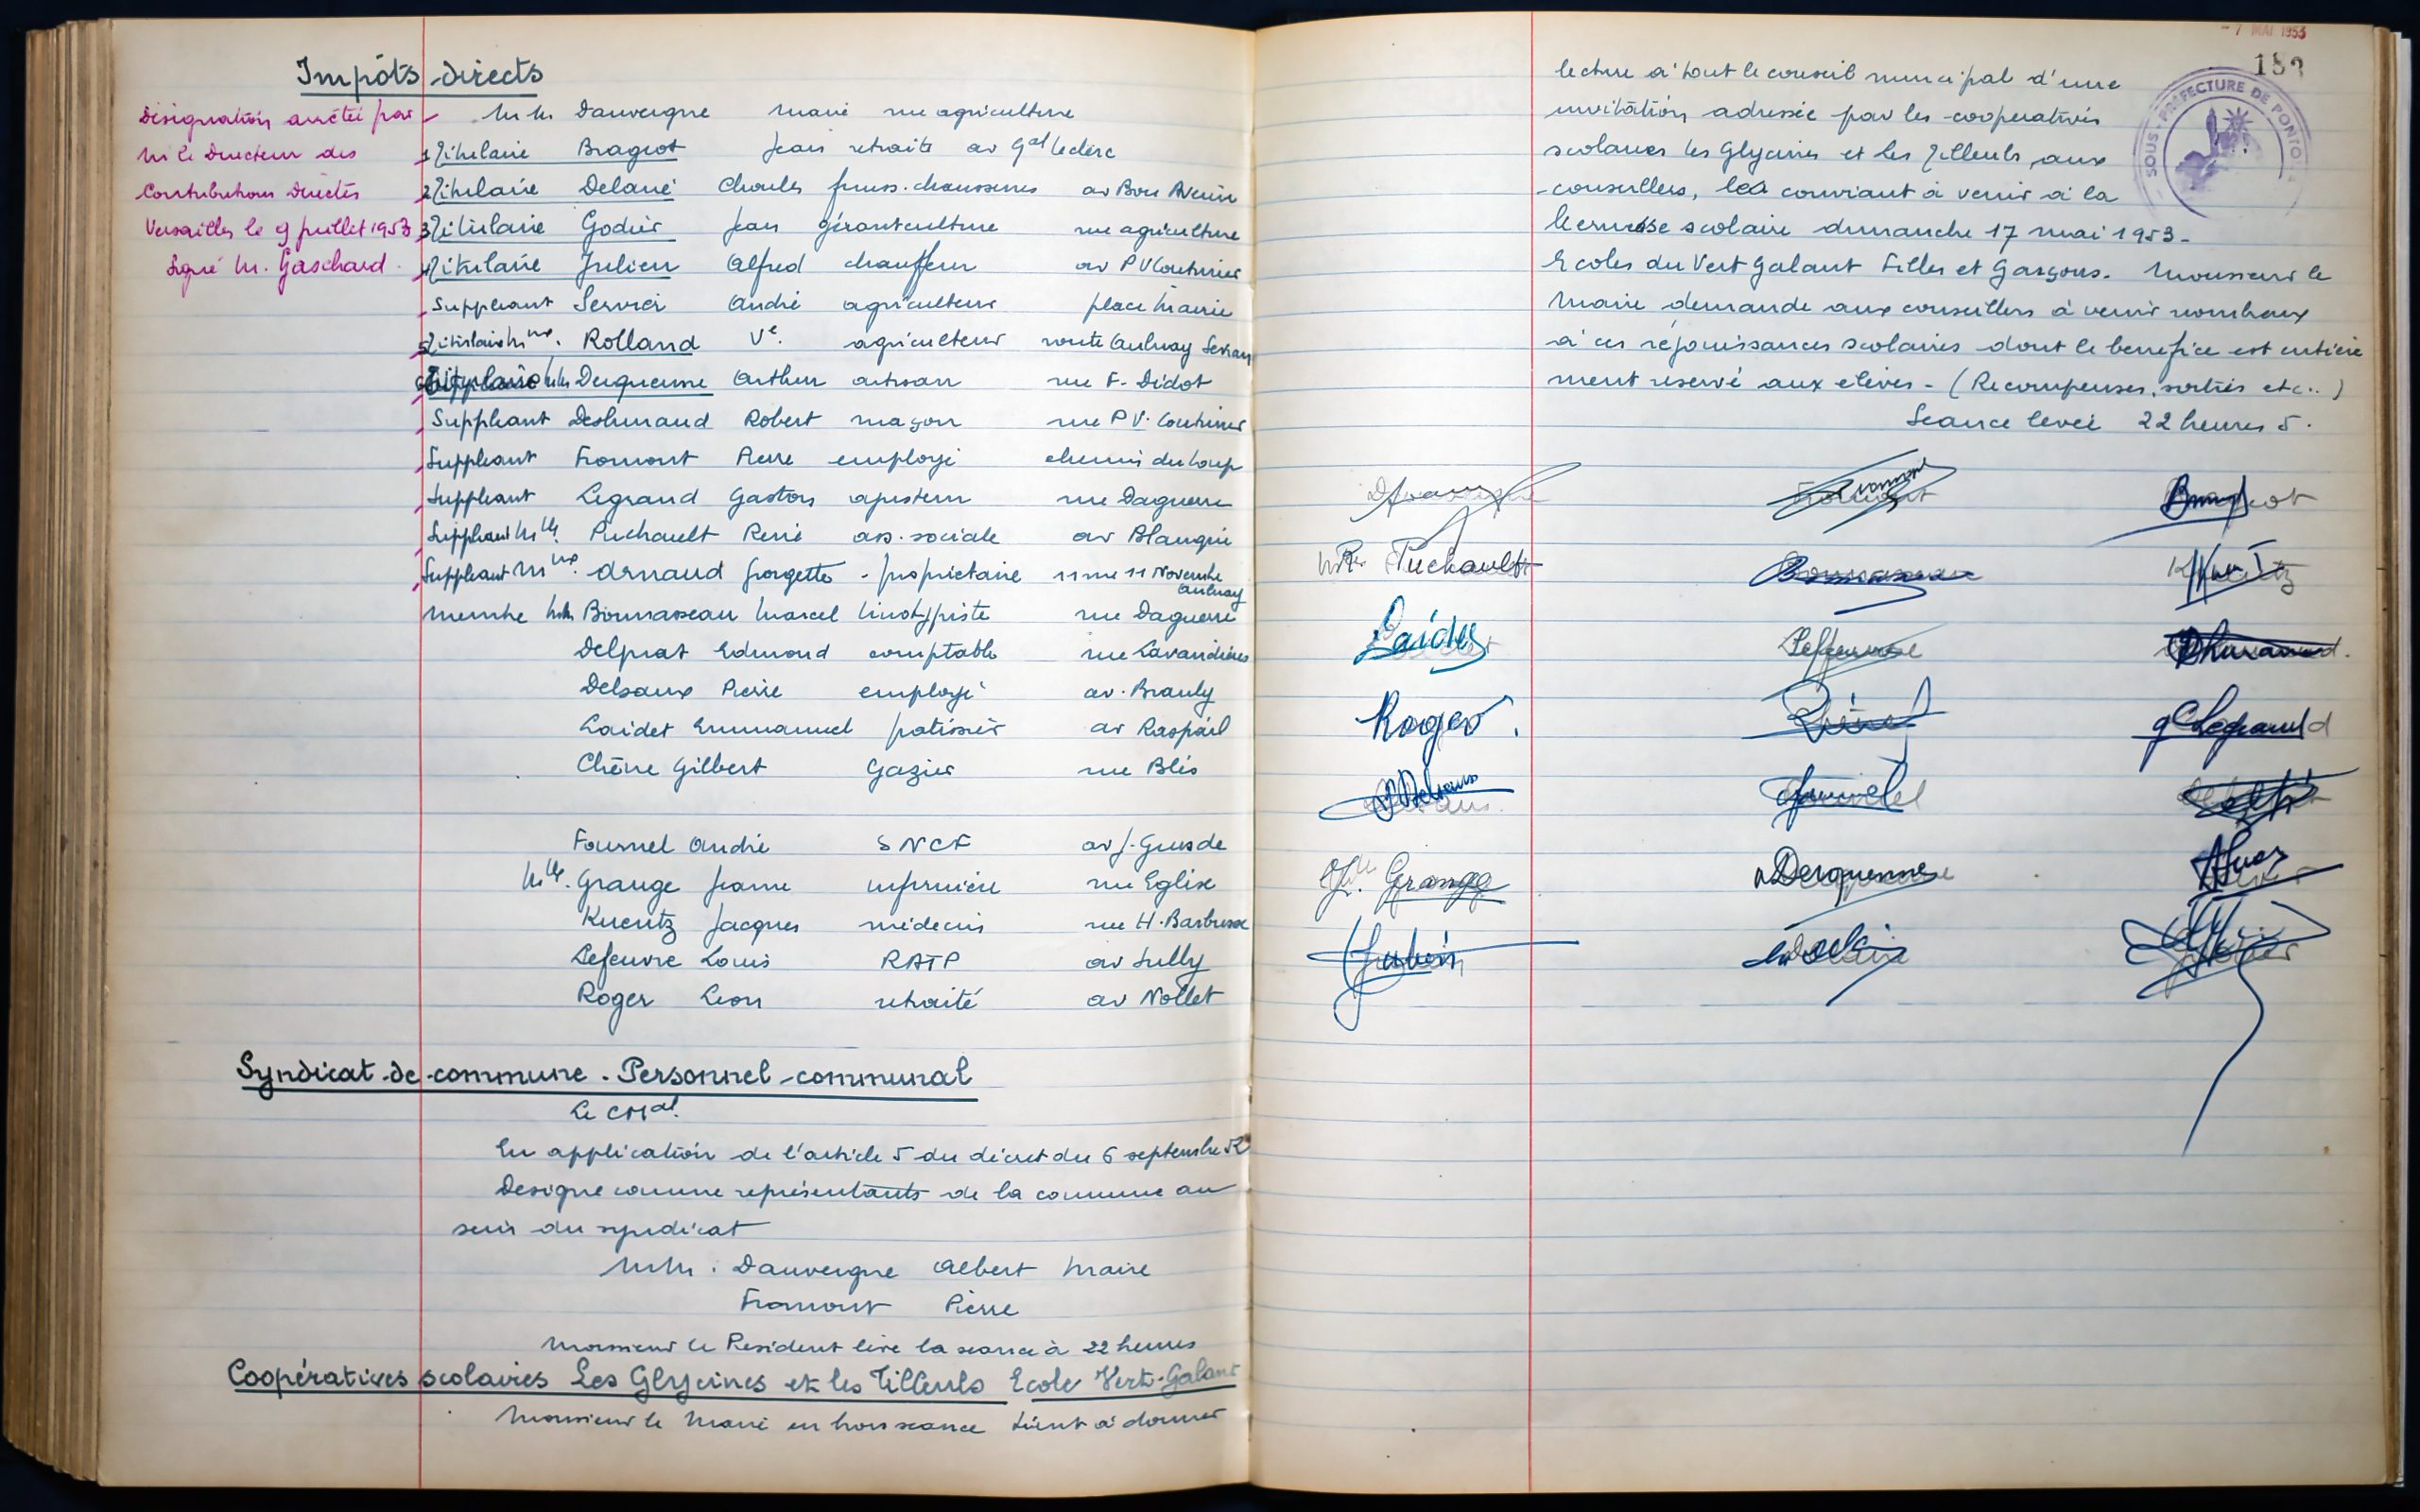 Impôts directs
Désignation arrêtée par
M le Directeur des
Contributions Directes
Versailles le 9 juillet 1953
Signé M. Gaschard.
MM Dauvergne maire rue agriculture
1 Titulaire Brageot Jean retraité av Gal Leclerc
2 Titulaire Delané Charles fourn. chaussures av Bon Avenir
3 Titulaire Godier Jean gérant culture rue agriculture
4 Titulaire Julien Alfred chauffeur av P V Couturier
Suppléant Servier André agriculteur place Mairie
5 Titulaire Mme. Rolland Ve. agriculteur route Aulnay Sevran
6 Titulaire MM Derquenne Arthur artisan rue F. Didot
Suppléant Deshuraud Robert maçon rue P V. Couturier
Suppléant Fromont Pierre employé chemin du Loup
Suppléant Legrand Gaston ajusteur rue Daguerre
Suppléant Mlle. Puchault Renée ass. sociale av Blanqui
Suppléant Mme. Arnaud Georgette - propriétaire 11 rue 11 Novembre
Aulnay
membre MM Bonnasseau Marcel linotypiste rue Daguerre
Delprat Edmond comptable rue Lavandières
Delsaux Pierre employé av. Branly
Laidet Emmanuel patissier av Raspail
Chêne Gilbert Gazier rue Blés
Fournel André SNCF av J. Guesde
Mlle. Grange Jeanne infirmière rue Eglise
Kuentz Jacques médecin rue H. Barbusse
Lefeuvre Louis RATP av Sully
Roger Léon retraité av Nollet
Syndicat de commune. Personnel communal
Le CMal.
En application de l'article 5 du décret du 6 septembre 52
Designe comme représentants de la commune au
sein du syndicat
MM. Dauvergne Albert Maire
Fromont Pierre
Monsieur le Président lève la séance à 22 heures
Coopératives scolaires Les Glycines et les Tilleuls Ecole Vert-Galant
Monsieur le Maire en hors séance tient à donner
- 7 MAI 1953
SOUS-PREFECTURE DE PONTO
lecture à tout le conseil municipal d'une
invitation adressée par les coopératives
scolaires les Glycines et les Tilleuls, aux
conseillers, les conviant à venir à la
kermesse scolaire dimanche 17 mai 1953-
Ecoles du Vert Galant Filles et Garçons. Monsieur le
Maire demande aux conseillers à venir nombreux
à ces réjouissances scolaires dont le bénéfice est entière
ment réservé aux élèves - (Récompenses, sorties etc..)
Séance levée 22 heures 5.
Fromont Brageot
Puchault Kuentz
Laidet Lefeuvre
Roger. Chêne G Legrand
Delsaux Fournel
Mlle. Grange Derquenne
Julien